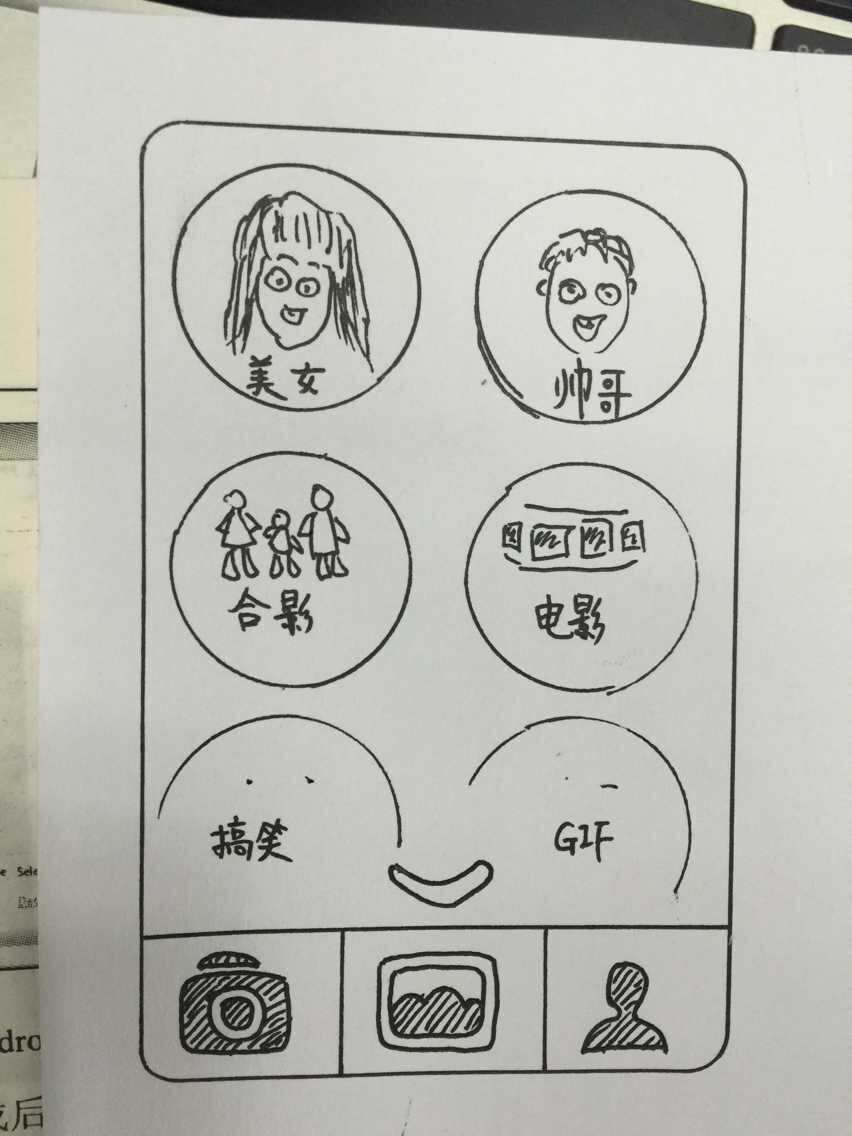 美女
帅哥
合影
电影
搞笑
GIF
e Sele
dro
后